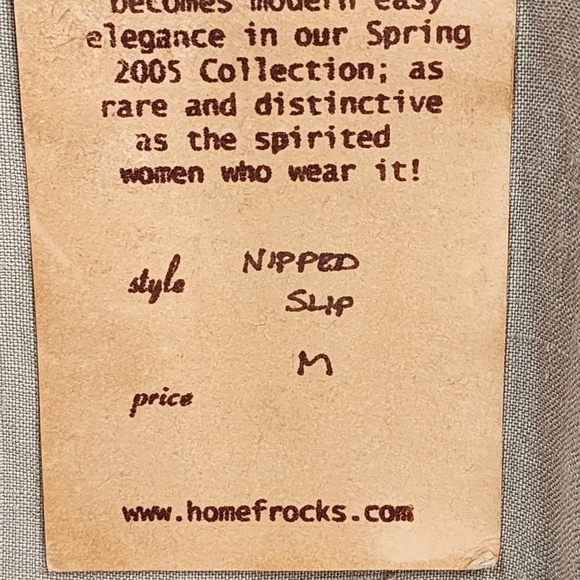 becomes modern easy
elegance in our Spring
2005 Collection; as
rare and distinctive
as the spirited
women who wear it!
style NIPPED
SLIP
M
price
www.homefrocks.com